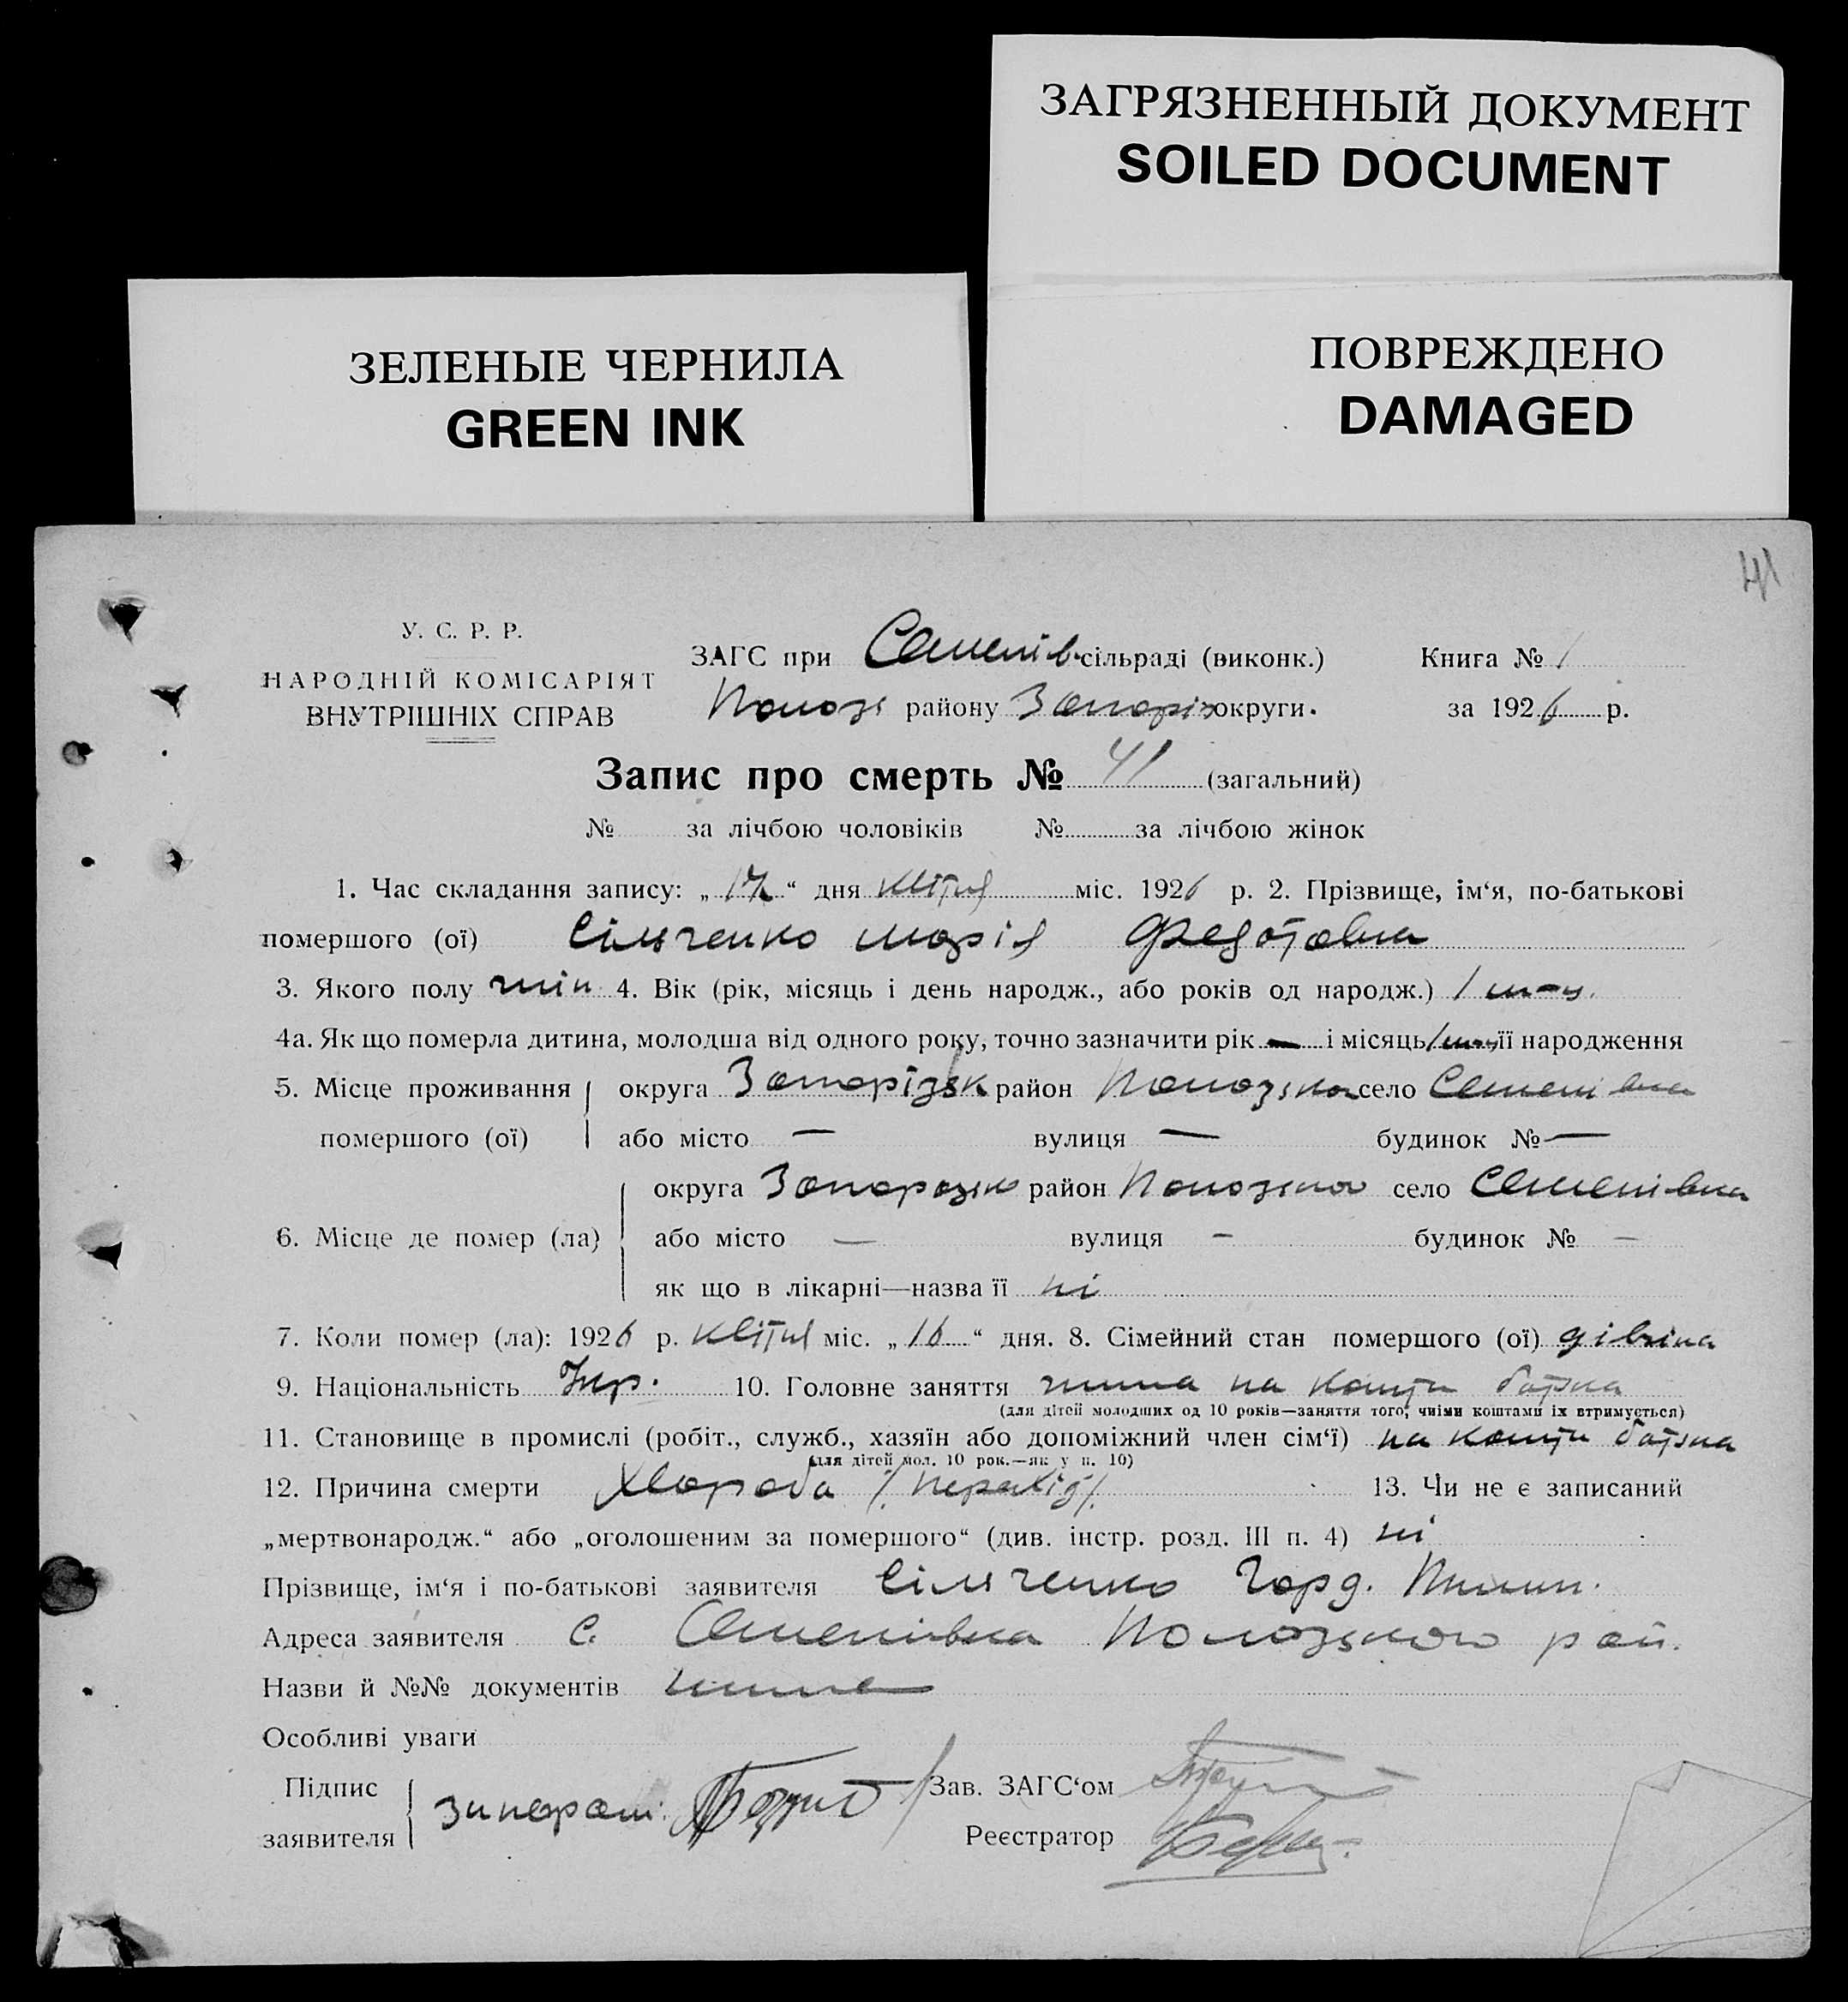 ЗАГРЯЗНЕННЫЙ ДОКУМЕНТ
SOILED DOCUMENT
ЗЕЛЕНЫЕ ЧЕРНИЛА
GREEN INK
ПОВРЕЖДЕНО
DAMAGED
41
У. С. Р. Р.
НАРОДНІЙ КОМІСАРІЯТ
ВНУТРІШНІХ СПРАВ
ЗАГС при Семенів. сільраді (виконк.) Книга № 1
Полозь району Запоріз округи. за 1926 р.
Запис про смерть № 41 (загальний)
№ за лічбою чоловіків № за лічбою жінок
1. Час складання запису: „17“ дня квітня міс. 1926 р. 2. Прізвище, ім‘я, по-батькові
помершого (ої) Сільченко Марія Федотовна
3. Якого полу жін 4. Вік (рік, місяць і день народж., або років од народж.) 1 м-ц.
4а. Як що померла дитина, молодша від одного року, точно зазначити рік — і місяць 1 м-ц її народження
5. Місце проживання округа Запорізьк район Полозько село Семенівка
помершого (ої) або місто — вулиця — будинок № —
округа Запорозьк район Полозько село Семенівка
6. Місце де помер (ла) або місто — вулиця - будинок № —
як що в лікарні—назва її ні
7. Коли помер (ла): 1926 р. квітня міс. „16“ дня. 8. Сімейний стан помершого (ої) дівчина
9. Національність Укр. 10. Головне заняття жила на кошти батька
(для дітей молодших од 10 років—заняття того, чиїми коштами їх втримується)
11. Становище в промислі (робіт., служб., хазяїн або допоміжний член сім‘ї) на кошти батька
(для дітей мол. 10 рок.—як у п. 10)
12. Причина смерти Хвороба 13. Чи не є записаний
„мертвонародж.“ або „оголошеним за помершого“ (див. інстр. розд. III п. 4) ні
Прізвище, ім‘я і по-батькові заявителя Сільченко Горд.
Адреса заявителя С. Семенівка Полозького рай.
Назви й №№ документів
Особливі уваги
Підпис
заявителя
Зав. ЗАГС‘ом
Реєстратор